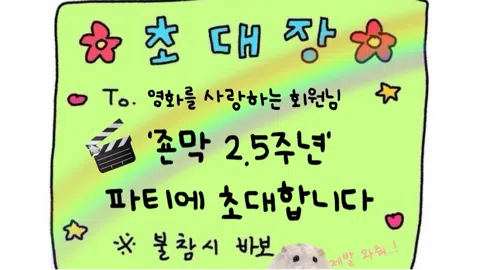 초대장
To. 영화를 사랑하는 회원님
'죤막 2.5주년'
파티에 초대합니다
※ 불참시 바보
제발 와줘..!